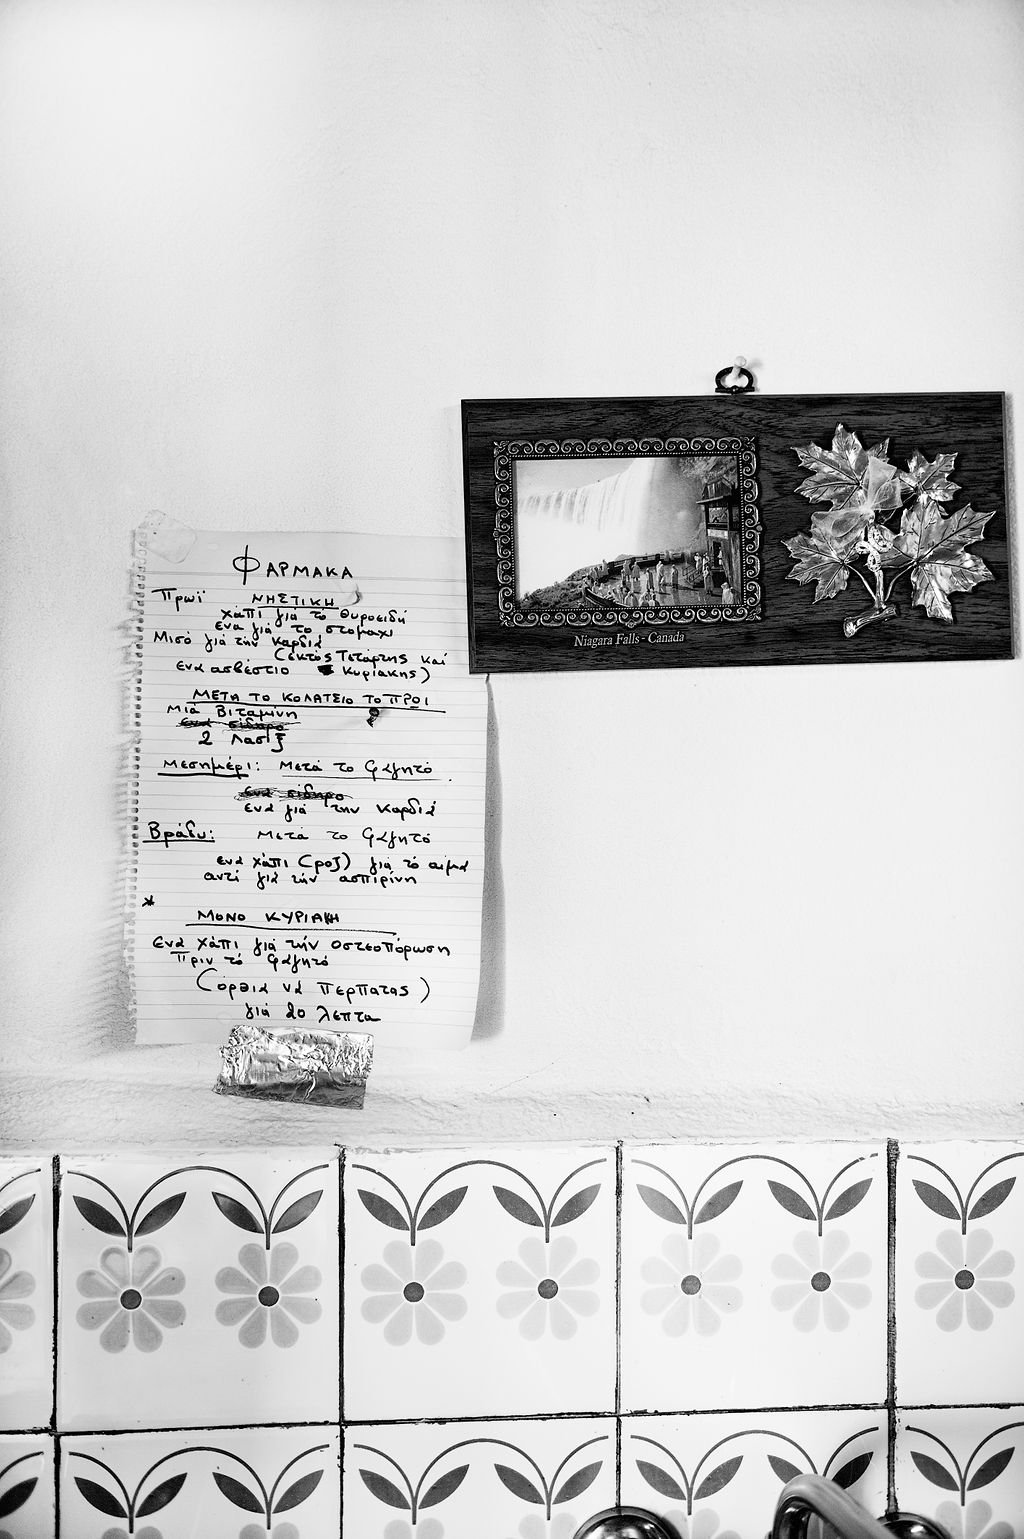 ΦΑΡΜΑΚΑ
Πρωϊ ΝΗΣΤΙΚΗ
χάπι γιά τό θυροειδή
ένα γιά το στομαχι
Μισό γιά τήν καρδιά
(εκτός Τετάρτης καί
ενα ασβέστιο Κυριακης)
ΜΕΤΑ ΤΟ ΚΟΛΑΤΣΙΟ ΤΟ ΠΡΩΙ
Μιά Βιταμίνη
ένα σίδηρο
2 Λασιξ
Μεσημέρι: Μετά το Φαγητό
ένα σίδηρο
ένα γιά την καρδιά
Βράδυ: Μετά το Φαγητό
ενα χάπι (ροζ) γιά τό αιμα
αντί γιά τήν ασπιρίνη
*
ΜΟΝΟ ΚΥΡΙΑΚΗ
Ενα χάπι γιά τήν Οστεοπόρωση
Πριν τό φαγητό
(όρθια νά περπατας)
γιά 20 λεπτα
Niagara Falls - Canada